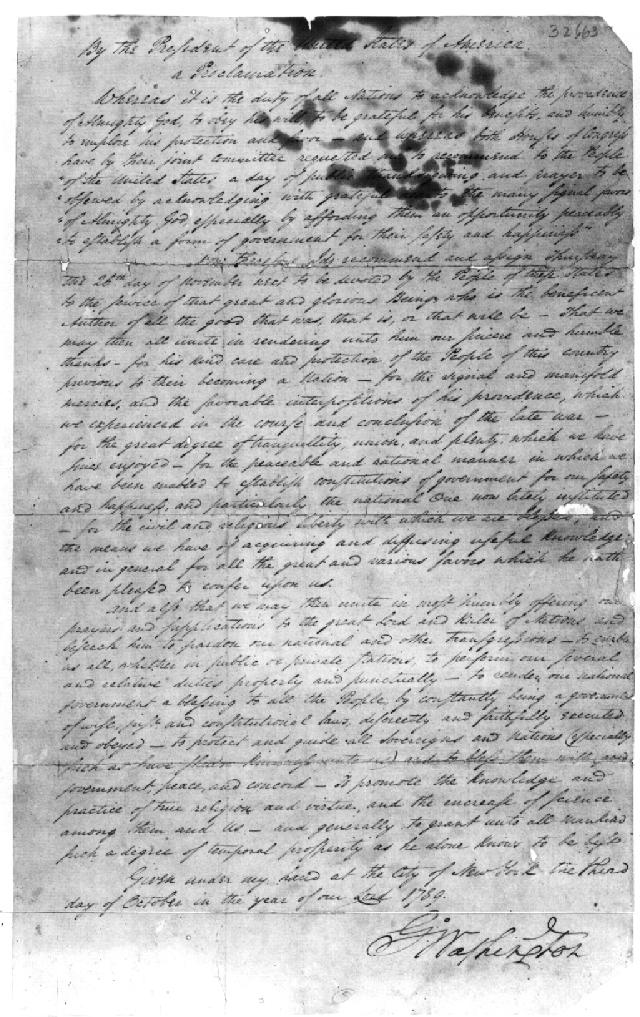 32663
By the President of the United States of America.
a Proclamation.
Whereas it is the duty of all Nations to acknowledge the providence
of Almighty God, to obey his will, to be grateful for his benefits, and humbly
to implore his protection and favor — and whereas both Houses of Congress
have by their joint committee requested me to recommend to the People
of the United States a day of public thanksgiving and prayer to be
observed by acknowledging with grateful the many signal favors
of Almighty God especially by affording them an opportunity peaceably
to establish a form of government for their safety and happiness"
Now therefore I do recommend and assign Thursday
the 26th day of November next to be devoted by the People of these States
to the service of that great and glorious Being, who is the beneficent
Author of all the good that was, that is, or that will be — That we
may then all unite in rendering unto him our sincere and humble
thanks — for his kind care and protection of the People of this country
previous to their becoming a Nation — for the signal and manifold
mercies, and the favorable interpositions of his providence, which
we experienced in the course and conclusion of the late war —
for the great degree of tranquillity, union, and plenty, which we have
since enjoyed — for the peaceable and rational manner in which we
have been enabled to establish constitutions of government for our safety
and happiness, and particularly the national One now lately instituted
— for the civil and religious liberty with which we are blessed and
the means we have of acquiring and diffusing useful knowledge;
and in general for all the great and various favors which he hath
been pleased to confer upon us.
And also that we may then unite in most humbly offering our
prayers and supplications to the great Lord and Ruler of Nations and
beseech him to pardon our national and other transgressions — to enable
us all, whether in public or private stations, to perform our several
and relative duties properly and punctually — to render our national
government a blessing to all the People, by constantly being a government
of wise, just and constitutional laws, discreetly and faithfully executed
and obeyed — to protect and guide all Sovereigns and Nations (especially
such as have shown kindness unto us) and to bless them with good
government, peace, and concord — To promote the knowledge and
practice of true religion and virtue, and the encrease of science
among them and Us — and generally to grant unto all mankind
such a degree of temporal prosperity as he alone knows to be best.
Given under my hand at the City of New York the third
day of October in the year of our Lord 1789.
G. Washington